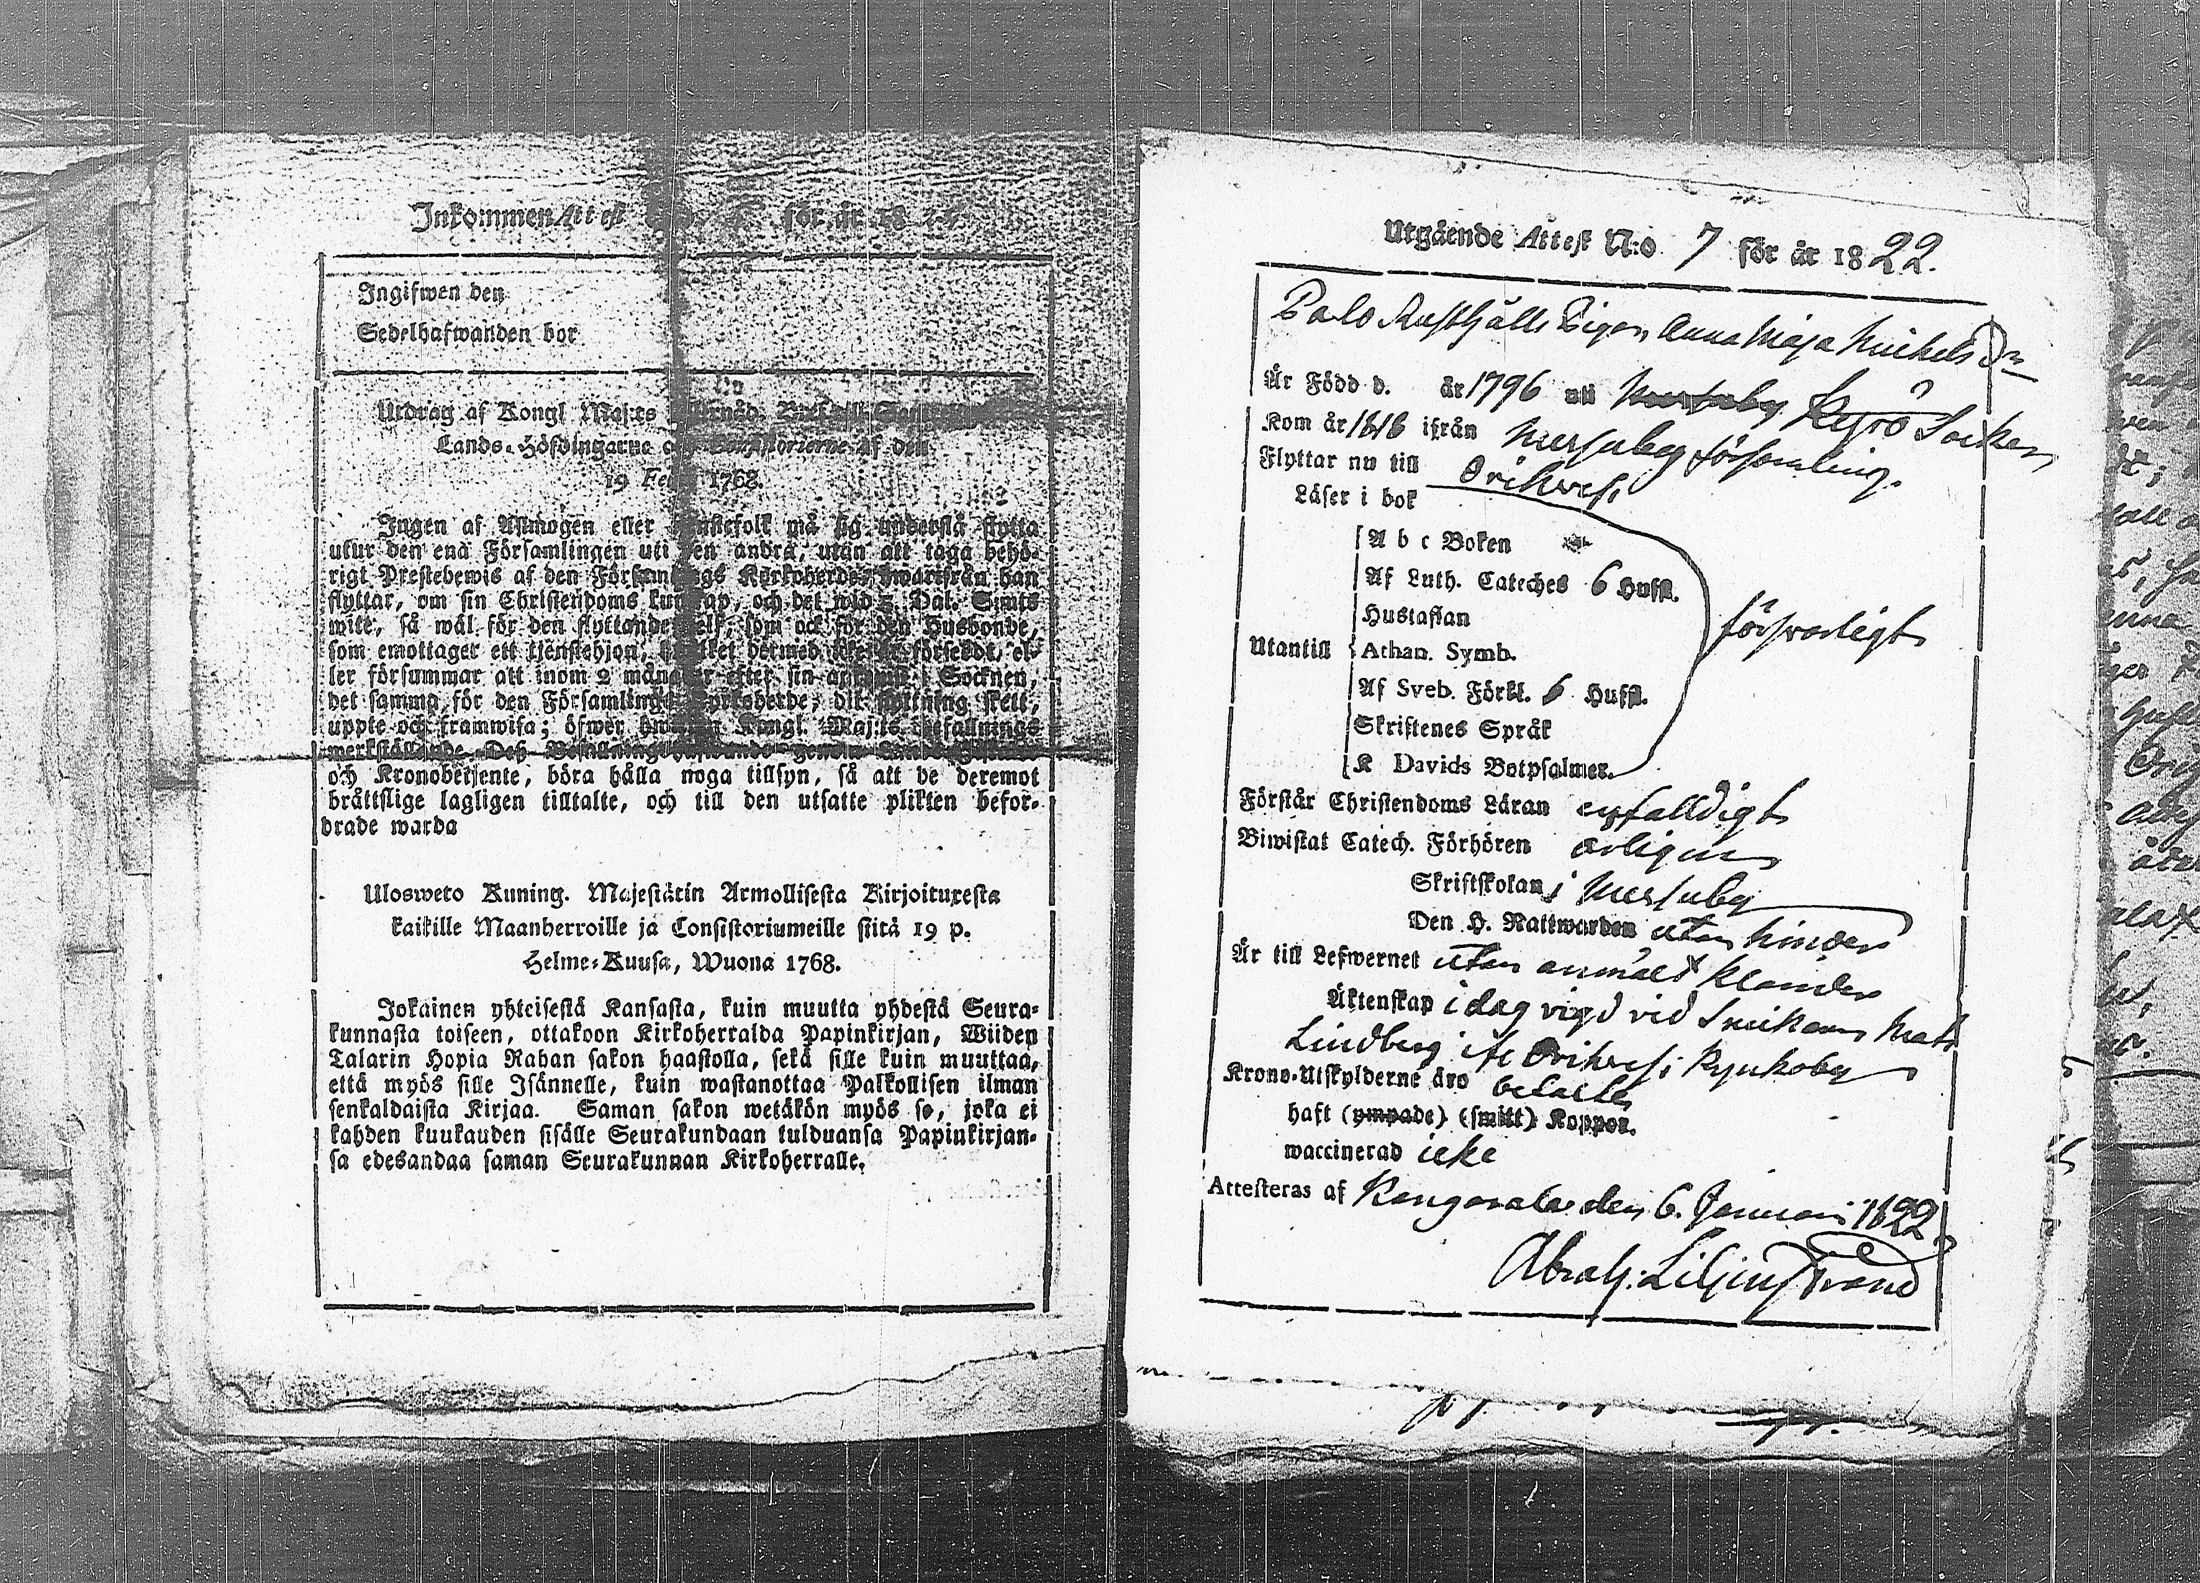 Inkommen Attest för år 18
Ingifwen den
Sedelhafwanden bor
Utdrag af Kongl Maj:ts
Lands-Höfdingarne och Consistorierne af den
19 Febr. 1768.
Ingen af Allmogen eller Tjenstefolk må sig understå flytta
utur den ena Församlingen uti den andra, utan att taga behö-
rigt Prestebewis af den Församlings Kyrkoherde, hwarifrån han
flyttar, om sin Christendoms kunskap, och det wid 5 Dal. S:mts
wite, så wäl för den flyttande sjelf, som ock för den Husbonde,
som emottager ett tjenstehjon, hwilket dermed icke är försedt, el-
ler försummar att inom 2 månader efter sin ankomst i Socknen,
det samma för den Församlings Kyrkoherde, dit flyttning skett,
uppte och framwisa; öfwer hwilken Kongl. Maj:ts befallnings
werkställande Deß Befallningshafwande genom
och Kronobetjente, böra hålla noga tillsyn, så att de deremot
bråttslige lagligen tilltalte, och till den utsatte plikten befor-
drade warda
Ulosweto Kuning. Majestätin Armollisesta Kirjoituxesta
kaikille Maanherroille ja Consistoriumeille siitä 19 p.
Helme-Kuusa, Wuona 1768.
Jokainen yhteisestä Kansasta, kuin muutta yhdestä Seura-
kunnasta toiseen, ottakoon Kirkoherralda Papinkirjan, Wiiden
Talarin Hopia Rahan sakon haastolla, sekä sille kuin muuttaa,
että myös sille Isännelle, kuin wastanottaa Palkollisen ilman
senkaldaista Kirjaa. Saman sakon wetäkön myös se, joka ei
kahden kuukauden sisälle Seurakundaan tulduansa Papinkirjan-
sa edesandaa saman Seurakunnan Kirkoherralle.
Utgående Attest N:o 7 för år 1822.
Palo Rusthålls Pigan Anna Maja Michels Dr
Är Född d. år 1796 uti Messuby Kyrö Socken
Kom år 1818 ifrån Messuby församling.
Flyttar nu till Orihvesi
Läser i bok
A b c Boken
Af Luth. Cateches 6 Hufst.
Hustaflan
Utantill Athan. Symb. försvarligt
Af Sveb. Förkl. 6 Hufst.
Skriftenes Språk
K Davids Botpsalmer.
Förstår Christendoms Läran enfalldigt
Biwistat Catech. Förhören årligen
Skriftskolan i Messuby
Den H. Nattwarden utan hinder
Är till Lefwernet utan anmält klander
Äktenskap i dag vigd vid Snickaren Mats
Lindberg ifr Orihvesi Pynkoby
Krono-Utskylderne äro betalte
haft (ympade) (smitt) Koppor.
waccinerad icke
Attesteras af Kangasala den 6. Januari 1822
Abrah: Liljenstrand